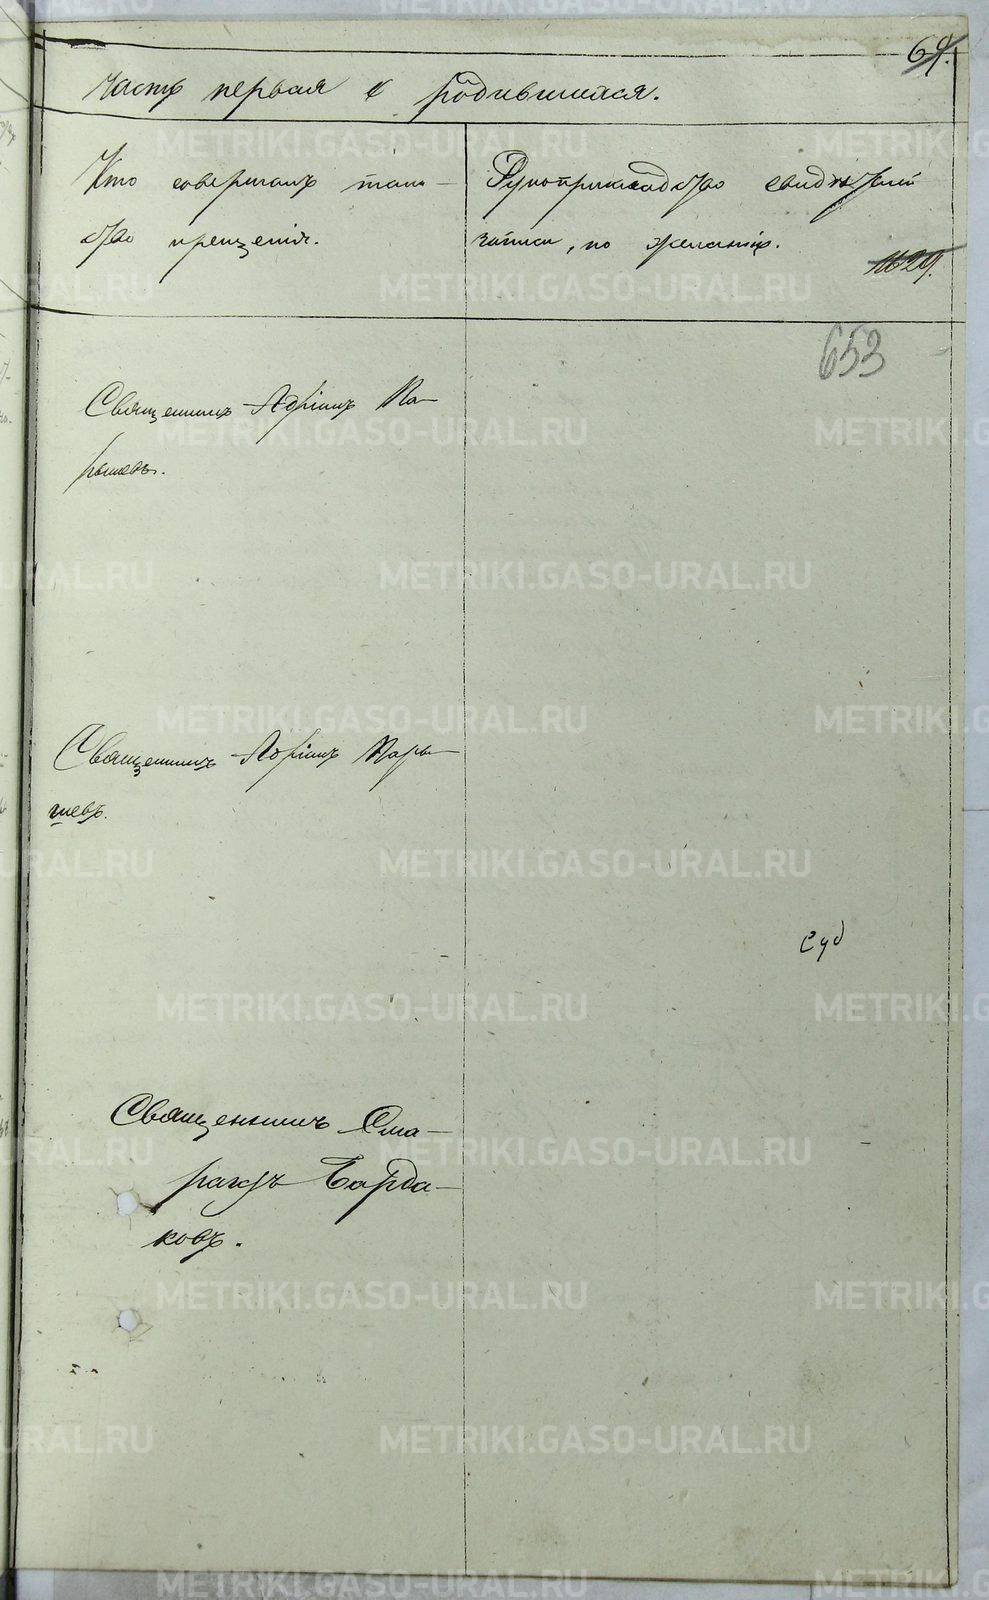 69.
Часть первая о родившихся.
Кто совершалъ таин-
ство крещенія.
Рукоприкладство свидѣтелей
записи, по желанію.
№ 29.
653
Священникъ Адріанъ Ка-
рышевъ.
Священникъ Адріанъ Кары-
шевъ.
Суд
Священникъ Сма-
рагдъ Бурда-
ковъ.
METRIKI.GASO-URAL.RU